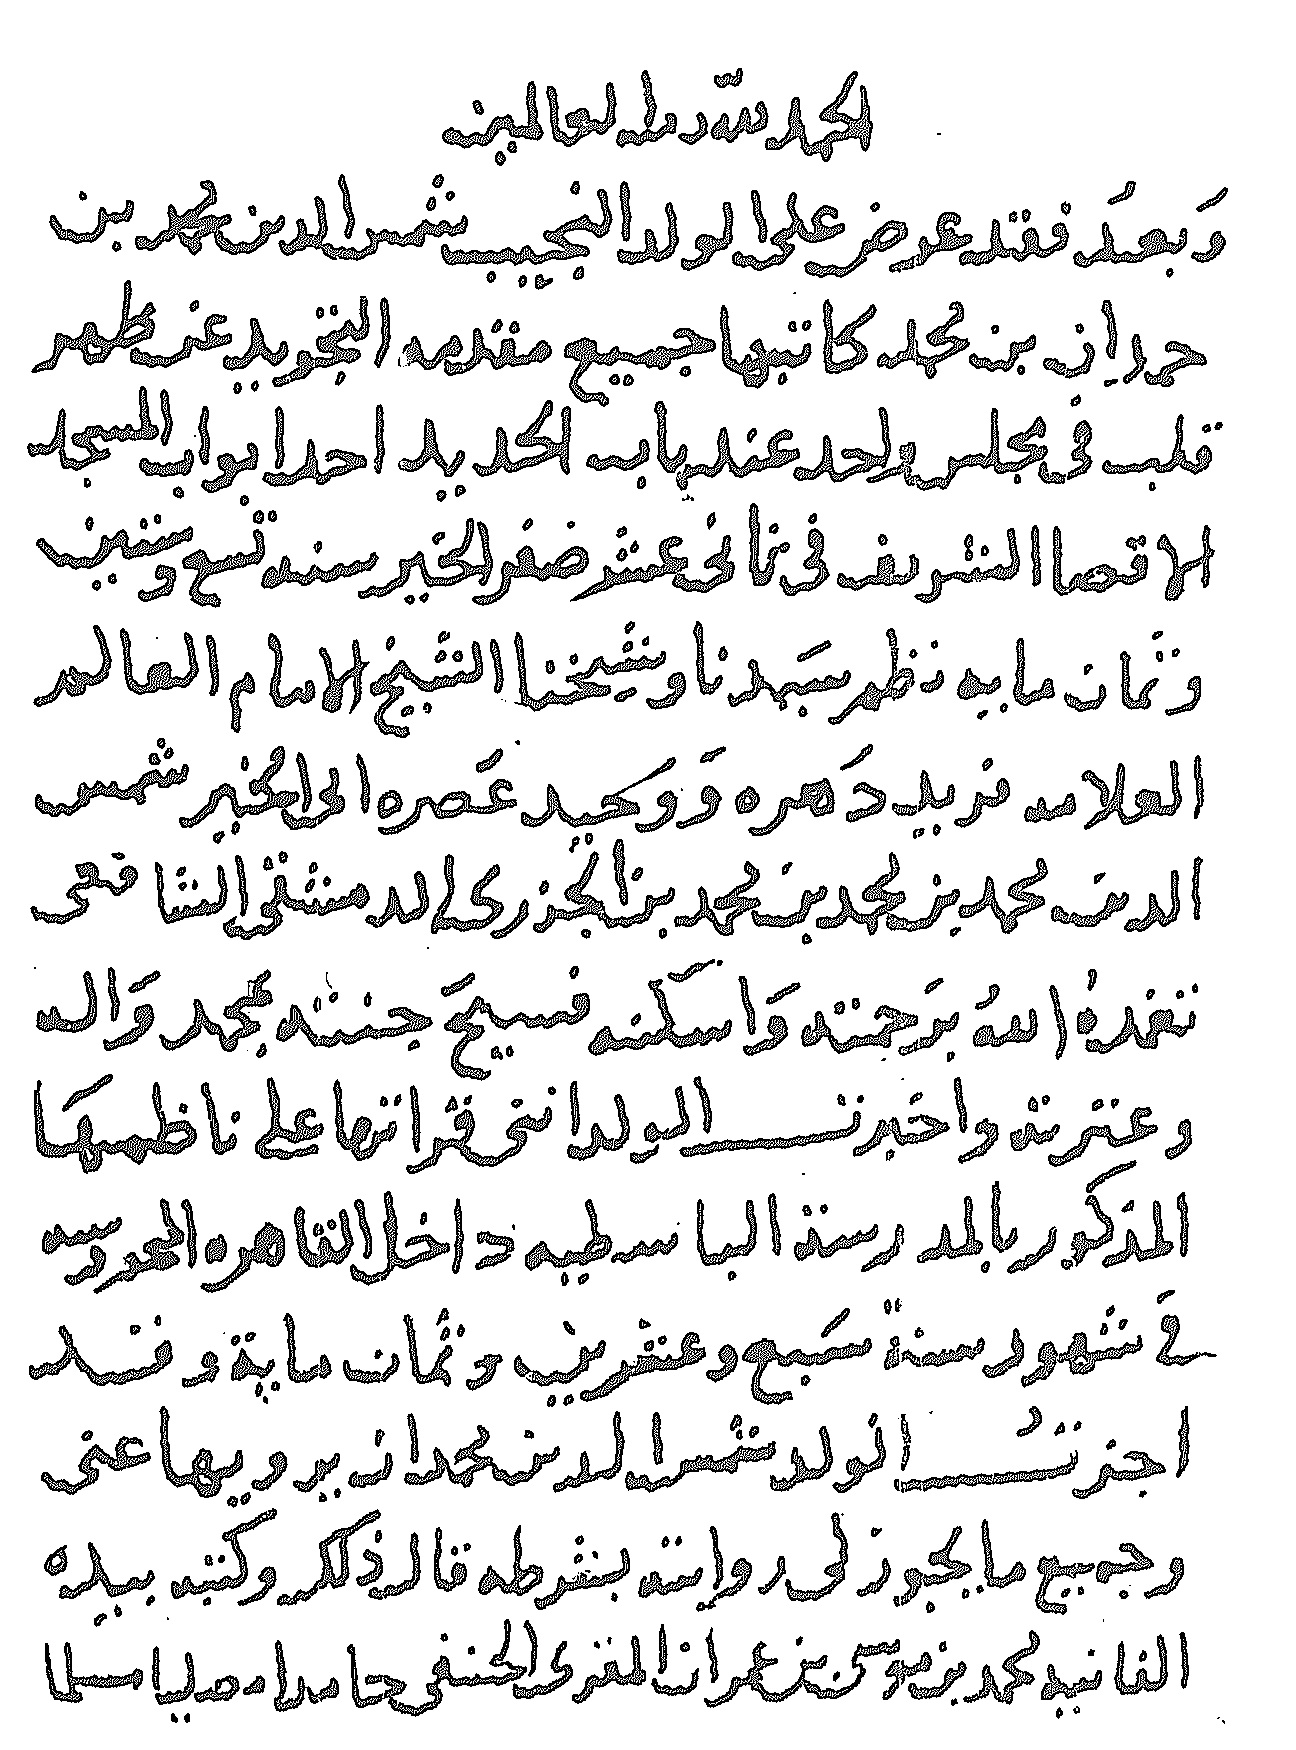 الحمد لله رب العالمين
وبعد فقد عرض على الولد النجيب شمس الدين محمد بن
حردان بن محمد كاتبها جميع مقدمه التجويد عن ظهر
قلب فى مجلس واحد عند باب الحديد احد ابواب المسجد
الاقصا الشريف فى ثانى عشر صفر الخير سنه تسع وستين
وثمان مايه نظم سيدنا وشيخنا الشيخ الامام العالم
العلامه فريد دهره ووحيد عصره ابى الخير شمس
الدين محمد بن محمد بن محمد بن الجزرى الدمشقى الشافعى
تغمده الله برحمته واسكنه فسيح جنته بمحمد واله
وعترته واخبرت الولد انى قراتها على ناظمها
المذكور بالمدرسة الباسطيه داخل القاهره المحروسه
فى شهور سنة سبع وعشرين وثمان ماية وقد
اجزت الولد شمس الدين محمد ان يرويها عنى
وجميع ما يجوز لى روايته بشرطه قال ذلك وكتبه بيده
الفانيه محمد بن موسى بن عمران المقرى الحنفى حامدا مصليا مسلما